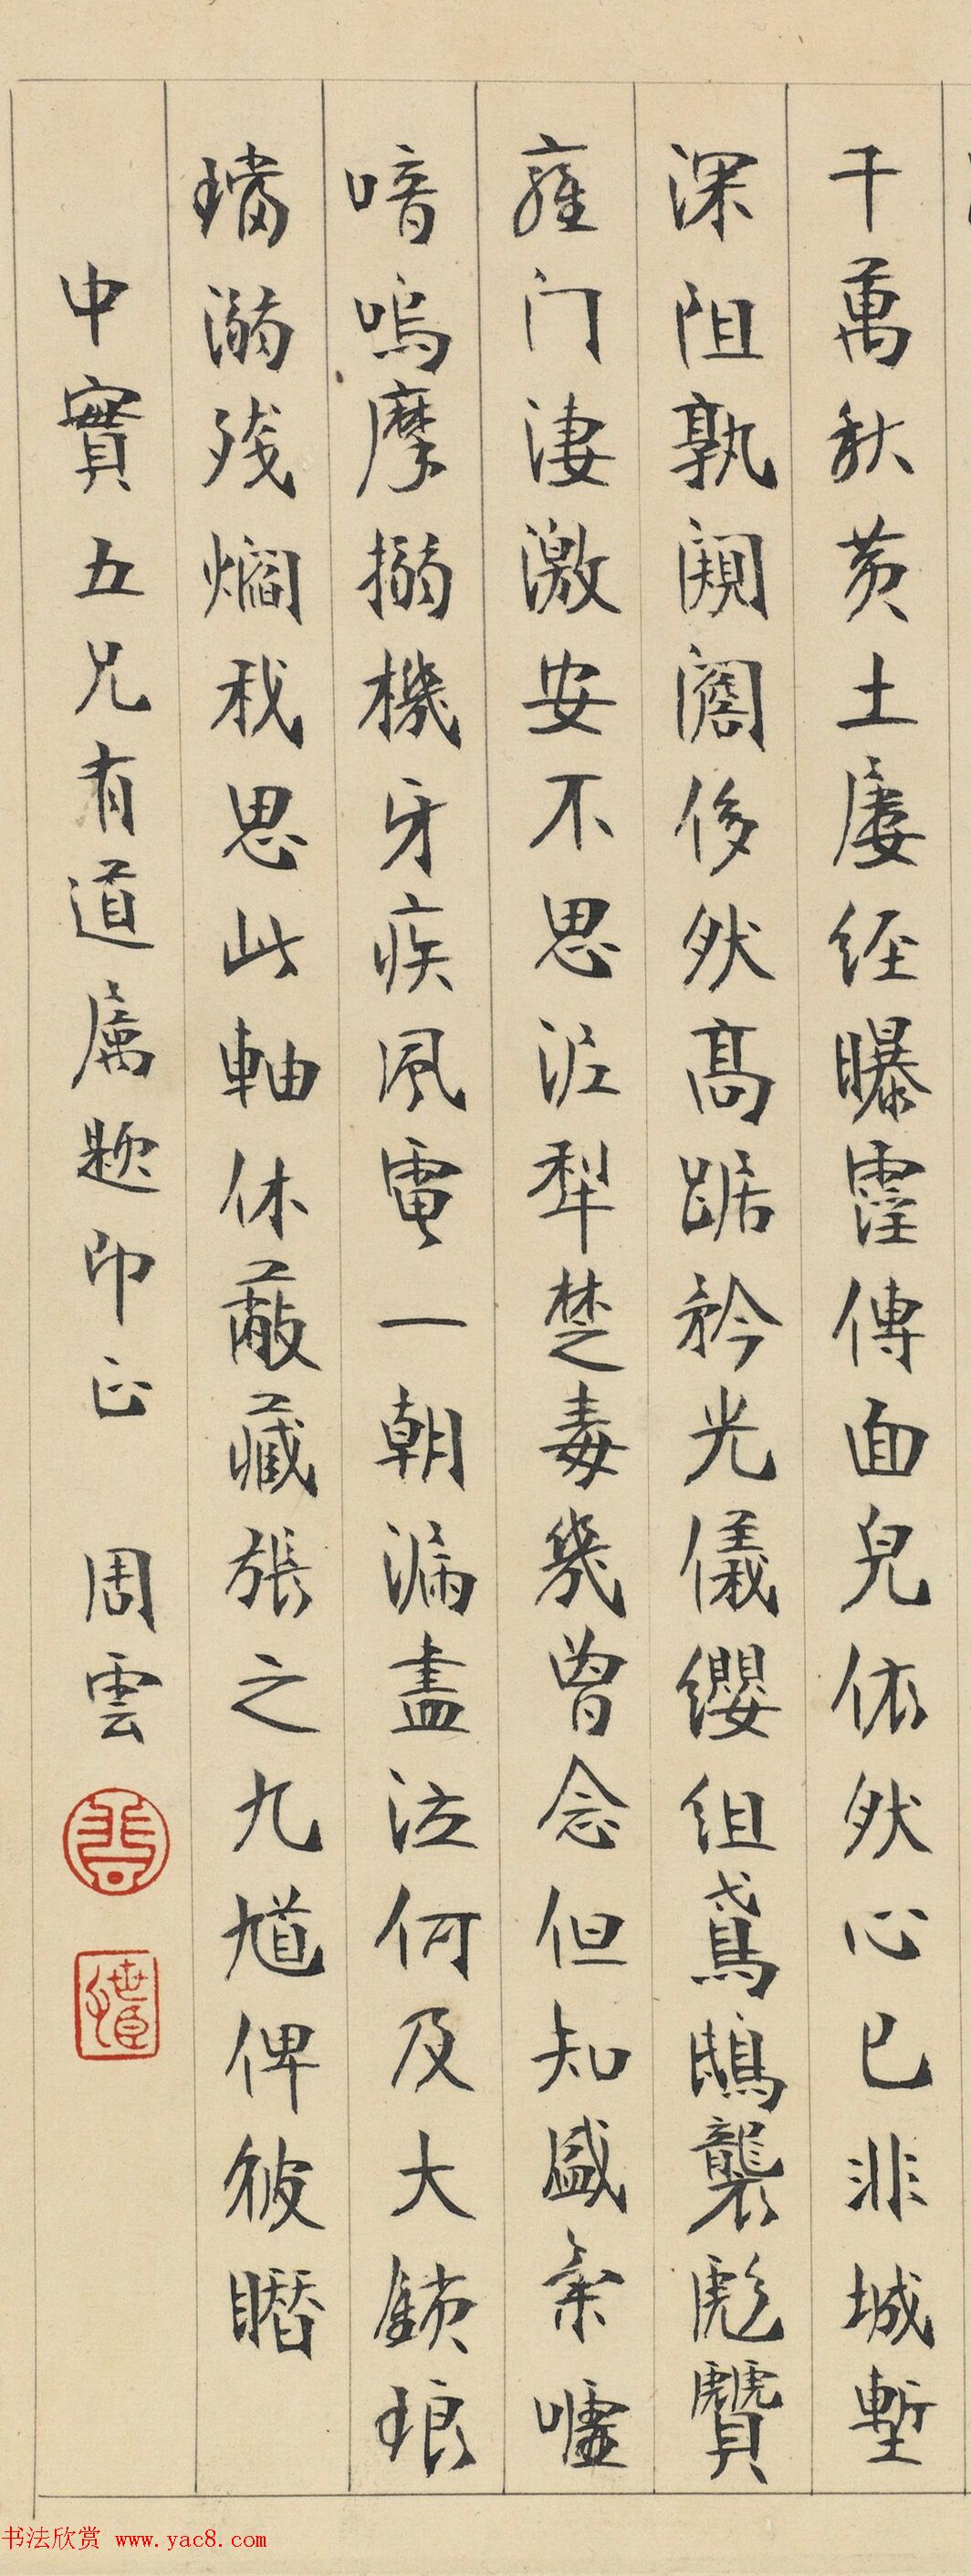 千萬秋黃土屢經曝霪傳面皃依然心已非城塹
深阻孰闚闟侈然高踞矜光儀纓組鳶鴟襲彪贙
雍门淒激安不思泥犁楚毒幾曾念但知盛氣嘘
喑嗚摩搦機牙疾風電一朝漏盡泣何及大鎖琅
璫溺殘爓我思此軸休蔽藏張之九馗俾彼瞻
中實五兄有道属题印正 周雲
书法欣赏 www.yac8.com